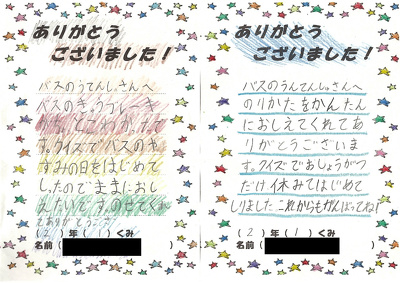 ありがとう
ございました！
バスのうてんしさんへ
バスのきゅうブレーキ
すみの日をはじめて
したのでままにおし
えたいです。のせてくれ
ありがとうござい
(2)年(1)くみ
名前(
)
ありがとう
ございました！
バスのうんてんしゅさんへ
のりかたをかんたん
におしえてくれてあ
りがとうございま
す。クイズでおしょうがつ
だけ休みてはじめて
しりました これからもがんばってね!
(2)年(1)くみ
名前(
)